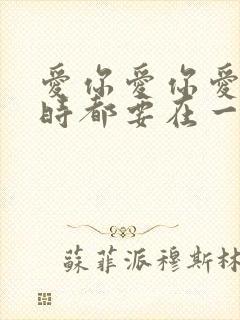 愛你愛你愛
時都要在一
蘇菲派穆斯林